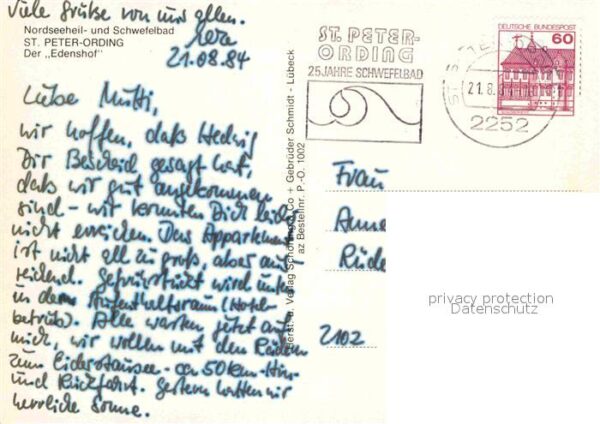 Viele Grüße von uns allen.
Nordseeheil- und Schwefelbad
ST. PETER-ORDING
Der „Edenshof"
21.08.84
Liebe Mutti,
wir hoffen, daß Hedwig
Dir Bescheid gesagt hat,
daß wir gut angekommen
sind - wir konnten Dich leider
nicht erreichen. Das Appartement
ist nicht all zu groß, aber aus
reichend. Gefrühstückt wird unten
in dem Aufenthaltsraum (Hotel-
betrieb). Alle warten jetzt auf
mich, wir wollen mit den Rädern
zum Eiderstausee - ca 50 km - Hin-
und Rückfahrt. Gestern hatten wir
herrliche Sonne.
Herst. u. Verlag Schöning & Co + Gebrüder Schmidt - Lübeck
az Bestellnr. P.-O. 1002
ST. PETER-
ORDING
25 JAHRE SCHWEFELBAD
DEUTSCHE BUNDESPOST
60
21.8.
2252
Frau
Anne
2102
privacy protection
Datenschutz